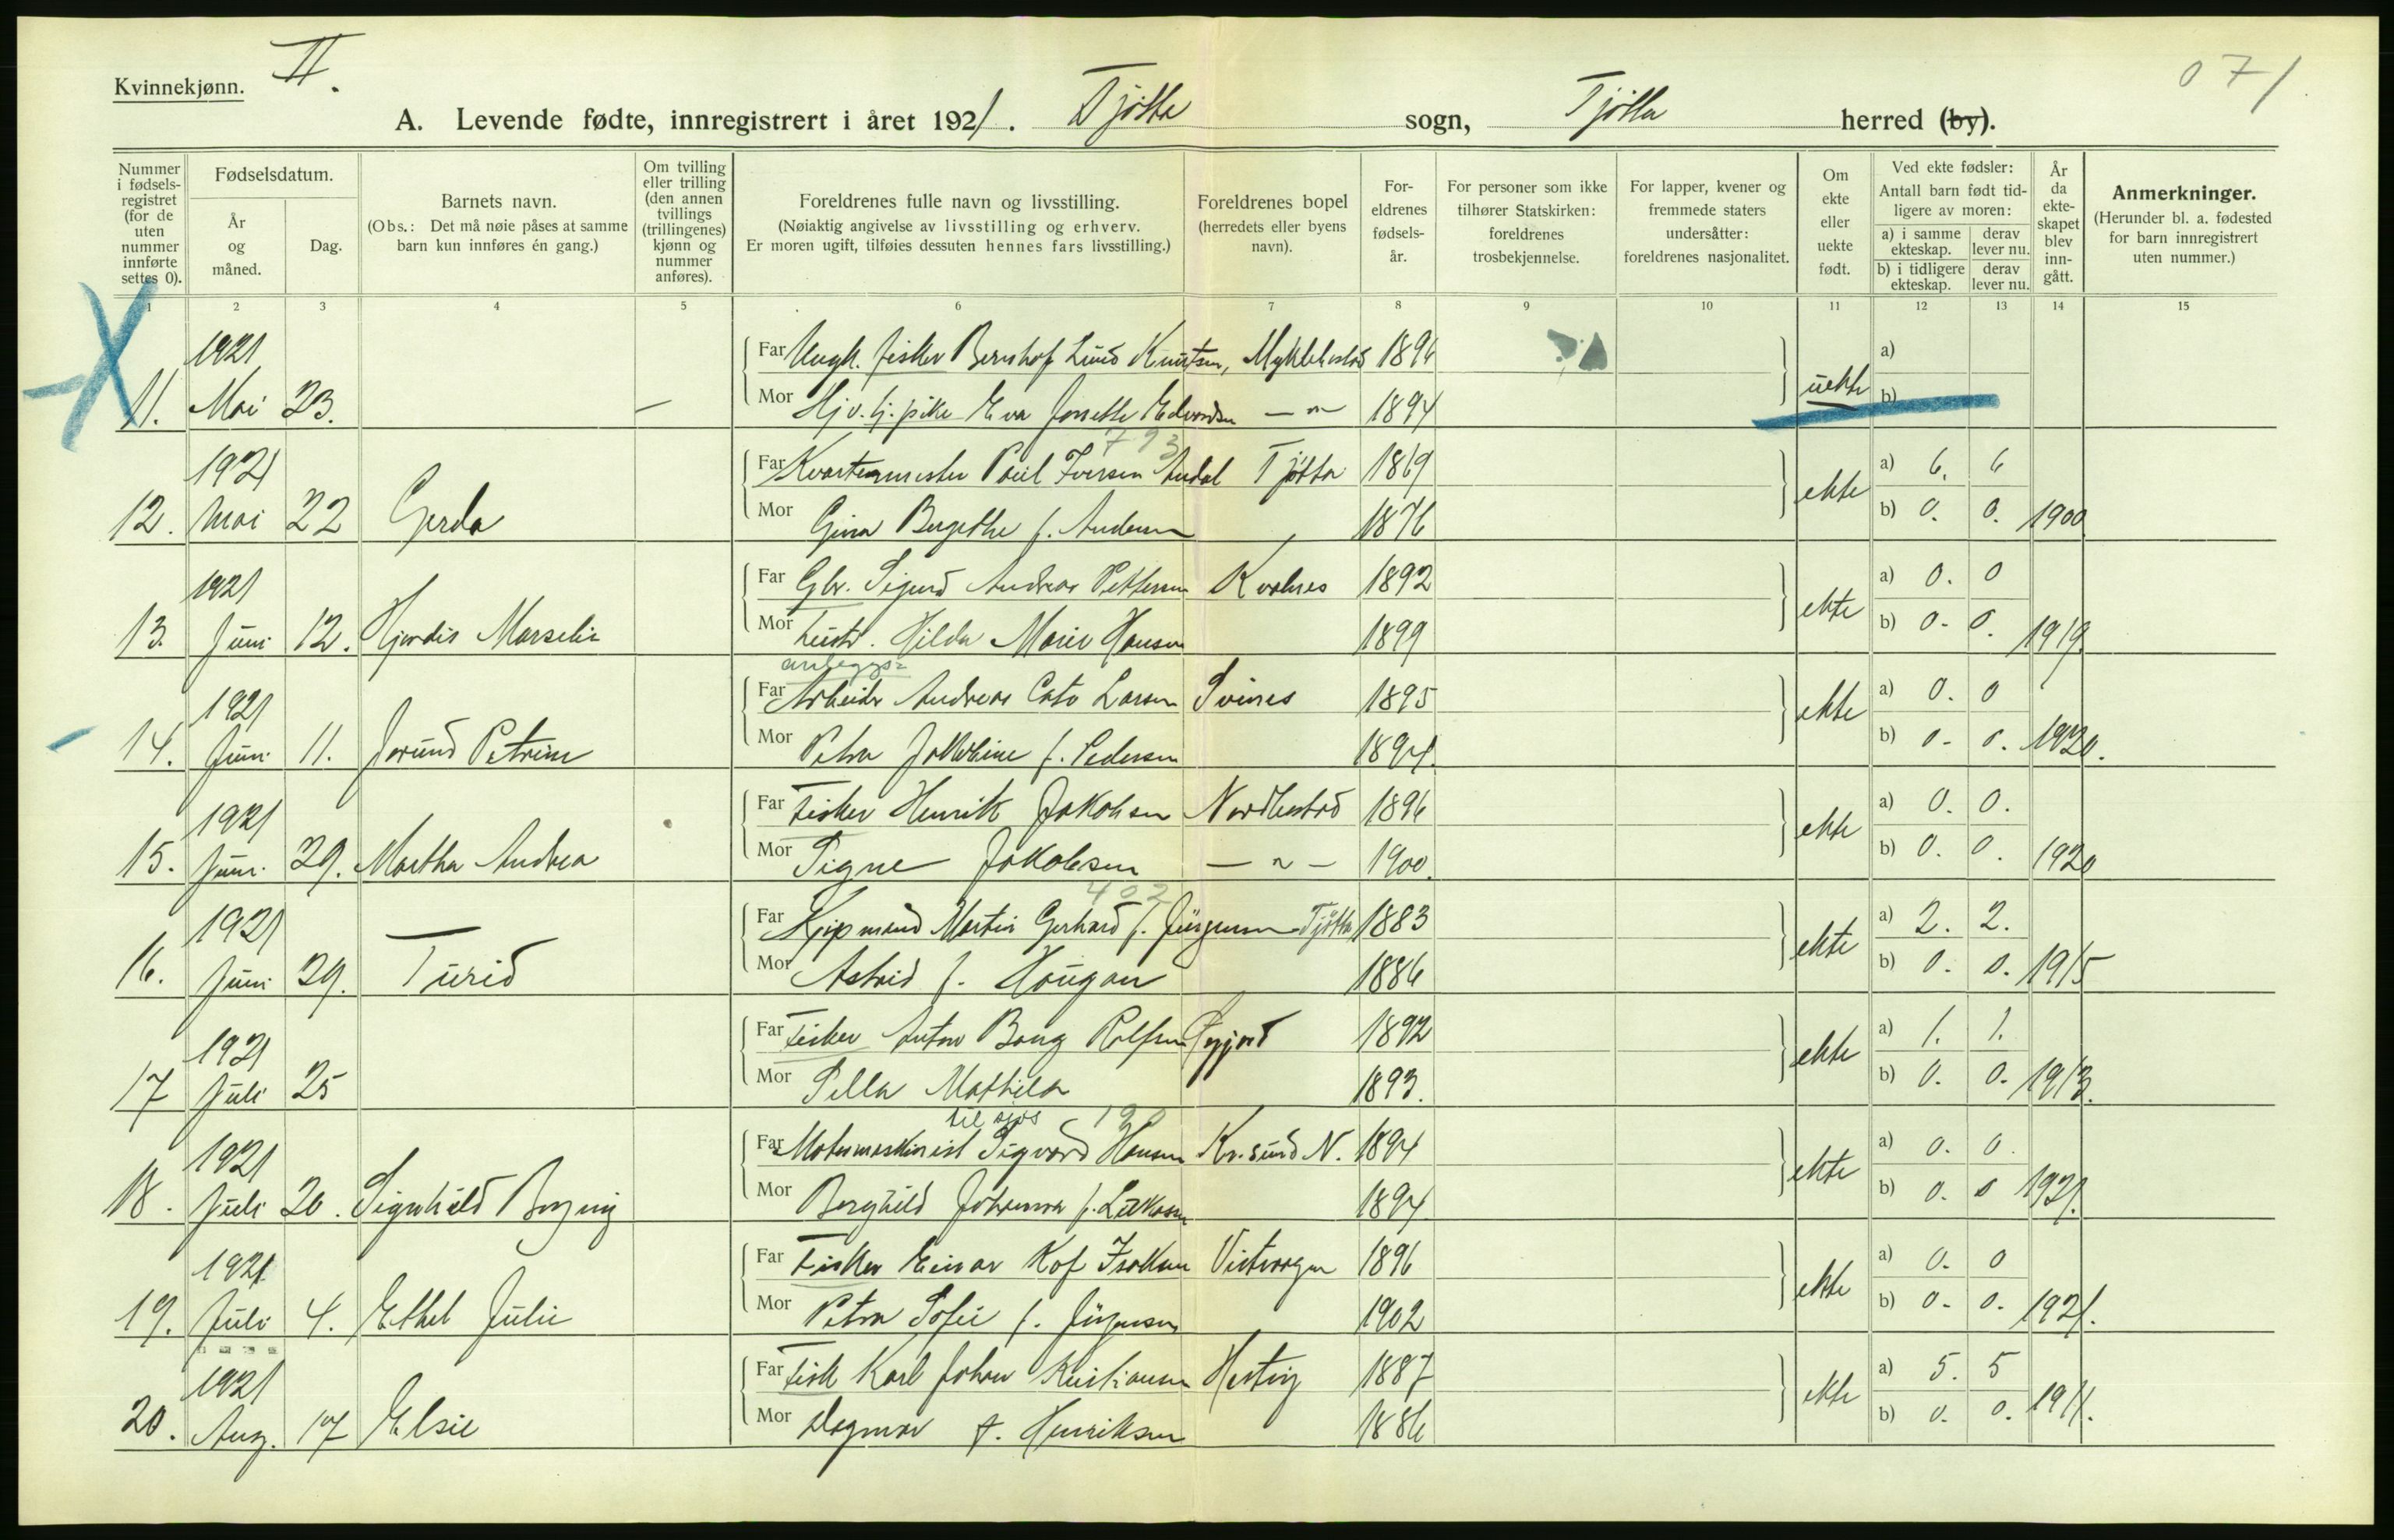 Kvinnekjønn. II.
071
A. Levende fødte, innregistrert i året 1921. Tjøtta sogn, Tjøtta herred (by).
Nummer i fødselsregistret (for de uten nummer innførte settes 0).
Fødselsdatum.
År og måned.
Dag.
Barnets navn.
(Obs.: Det må nøie påses at samme barn kun innføres én gang.)
Om tvilling eller trilling (den annen tvillings (trillingenes) kjønn og nummer anføres).
Foreldrenes fulle navn og livsstilling.
(Nøiaktig angivelse av livsstilling og erhverv.
Er moren ugift, tilføies dessuten hennes fars livsstilling.)
Foreldrenes bopel (herredets eller byens navn).
Foreldrenes fødselsår.
For personer som ikke tilhører Statskirken: foreldrenes trosbekjennelse.
For lapper, kvener og fremmede staters undersåtter: foreldrenes nasjonalitet.
Om ekte eller uekte født.
Ved ekte fødsler:
Antall barn født tidligere av moren:
a) i samme ekteskap. derav lever nu.
b) i tidligere ekteskap. derav lever nu.
År da ekteskapet blev inngått.
Anmerkninger.
(Herunder bl. a. fødested for barn innregistrert uten nummer.)
1 2 3 4 5 6 7 8 9 10 11 12 13 14 15
1921 Far Ungk. fisker Bernhof Lund Knutsen, Myklebostad 1896 a)
11. Mai 23. — Mor Hj.v. tj. pike Eva Jonette Edvardsen — " — 1894 uekte b)
793
1921 Far Kvartermester Paul Iversen Andal Tjøtta 1869 a) 6. 6
12. Mai 22 Gerda Mor Gina Bergethe f. Andersen 1876 ekte b) 0. 0. 1900
1921 Far Gbr. Sigurd Andreas Pettersen Kvalnes 1892 a) 0. 0
13. Juni 12. Hjørdis Marselie Mor hustr. Hilda Marie Hansen 1899 ekte b) 0. 0. 1919.
anleggs=
1921 Far Arbeider Andreas Cato Larsen Svines 1895 a) 0. 0
14. Juni 11. Jorund Petrine Mor Petra Jakobine f. Pedersen 1894. ekte b) 0. 0. 1920.
1921 Far Fisker Henrik Jakobsen 1896 a) 0. 0.
15. Juni 29. Martha Andrea Mor Signe Jakobsen — " — 1900. ekte b) 0. 0. 1920
402
1921 Far Kjøpmand Martin Gerhard f. Jürgensen Tjøtta 1883 a) 2. 2.
16. Juni 29. Turid Mor Astrid f. Haugan 1886 ekte b) 0. 0. 1915
1921 Far Fisker Anton Bang Rolfsen 1892 a) 1. 1.
17 Juli 25 Mor Pella Mathilda 1893. ekte b) 0. 0. 1913.
til sjøs 190
1921 Far Motormaskinist Sigvard Hansen Kr.sund N. 1894 a) 0. 0
18. Juli 20. Signhild Mor Borghild Johanna f. 1894 ekte b) 0. 0 1921.
1921 Far Fisker Einar Kof Isaksen 1896 a) 0. 0
19. Juli 4. Ethel Julie Mor Petra Sofie f. Jürgensen 1902 ekte b) 0. 0. 1921.
1921 Far Fisk Karl Johan Kristiansen Hestøy 1887 a) 5. 5
20. Aug. 17 Elsie Mor Dagmar f. Henriksen 1886 ekte b) 0. 0. 1911.